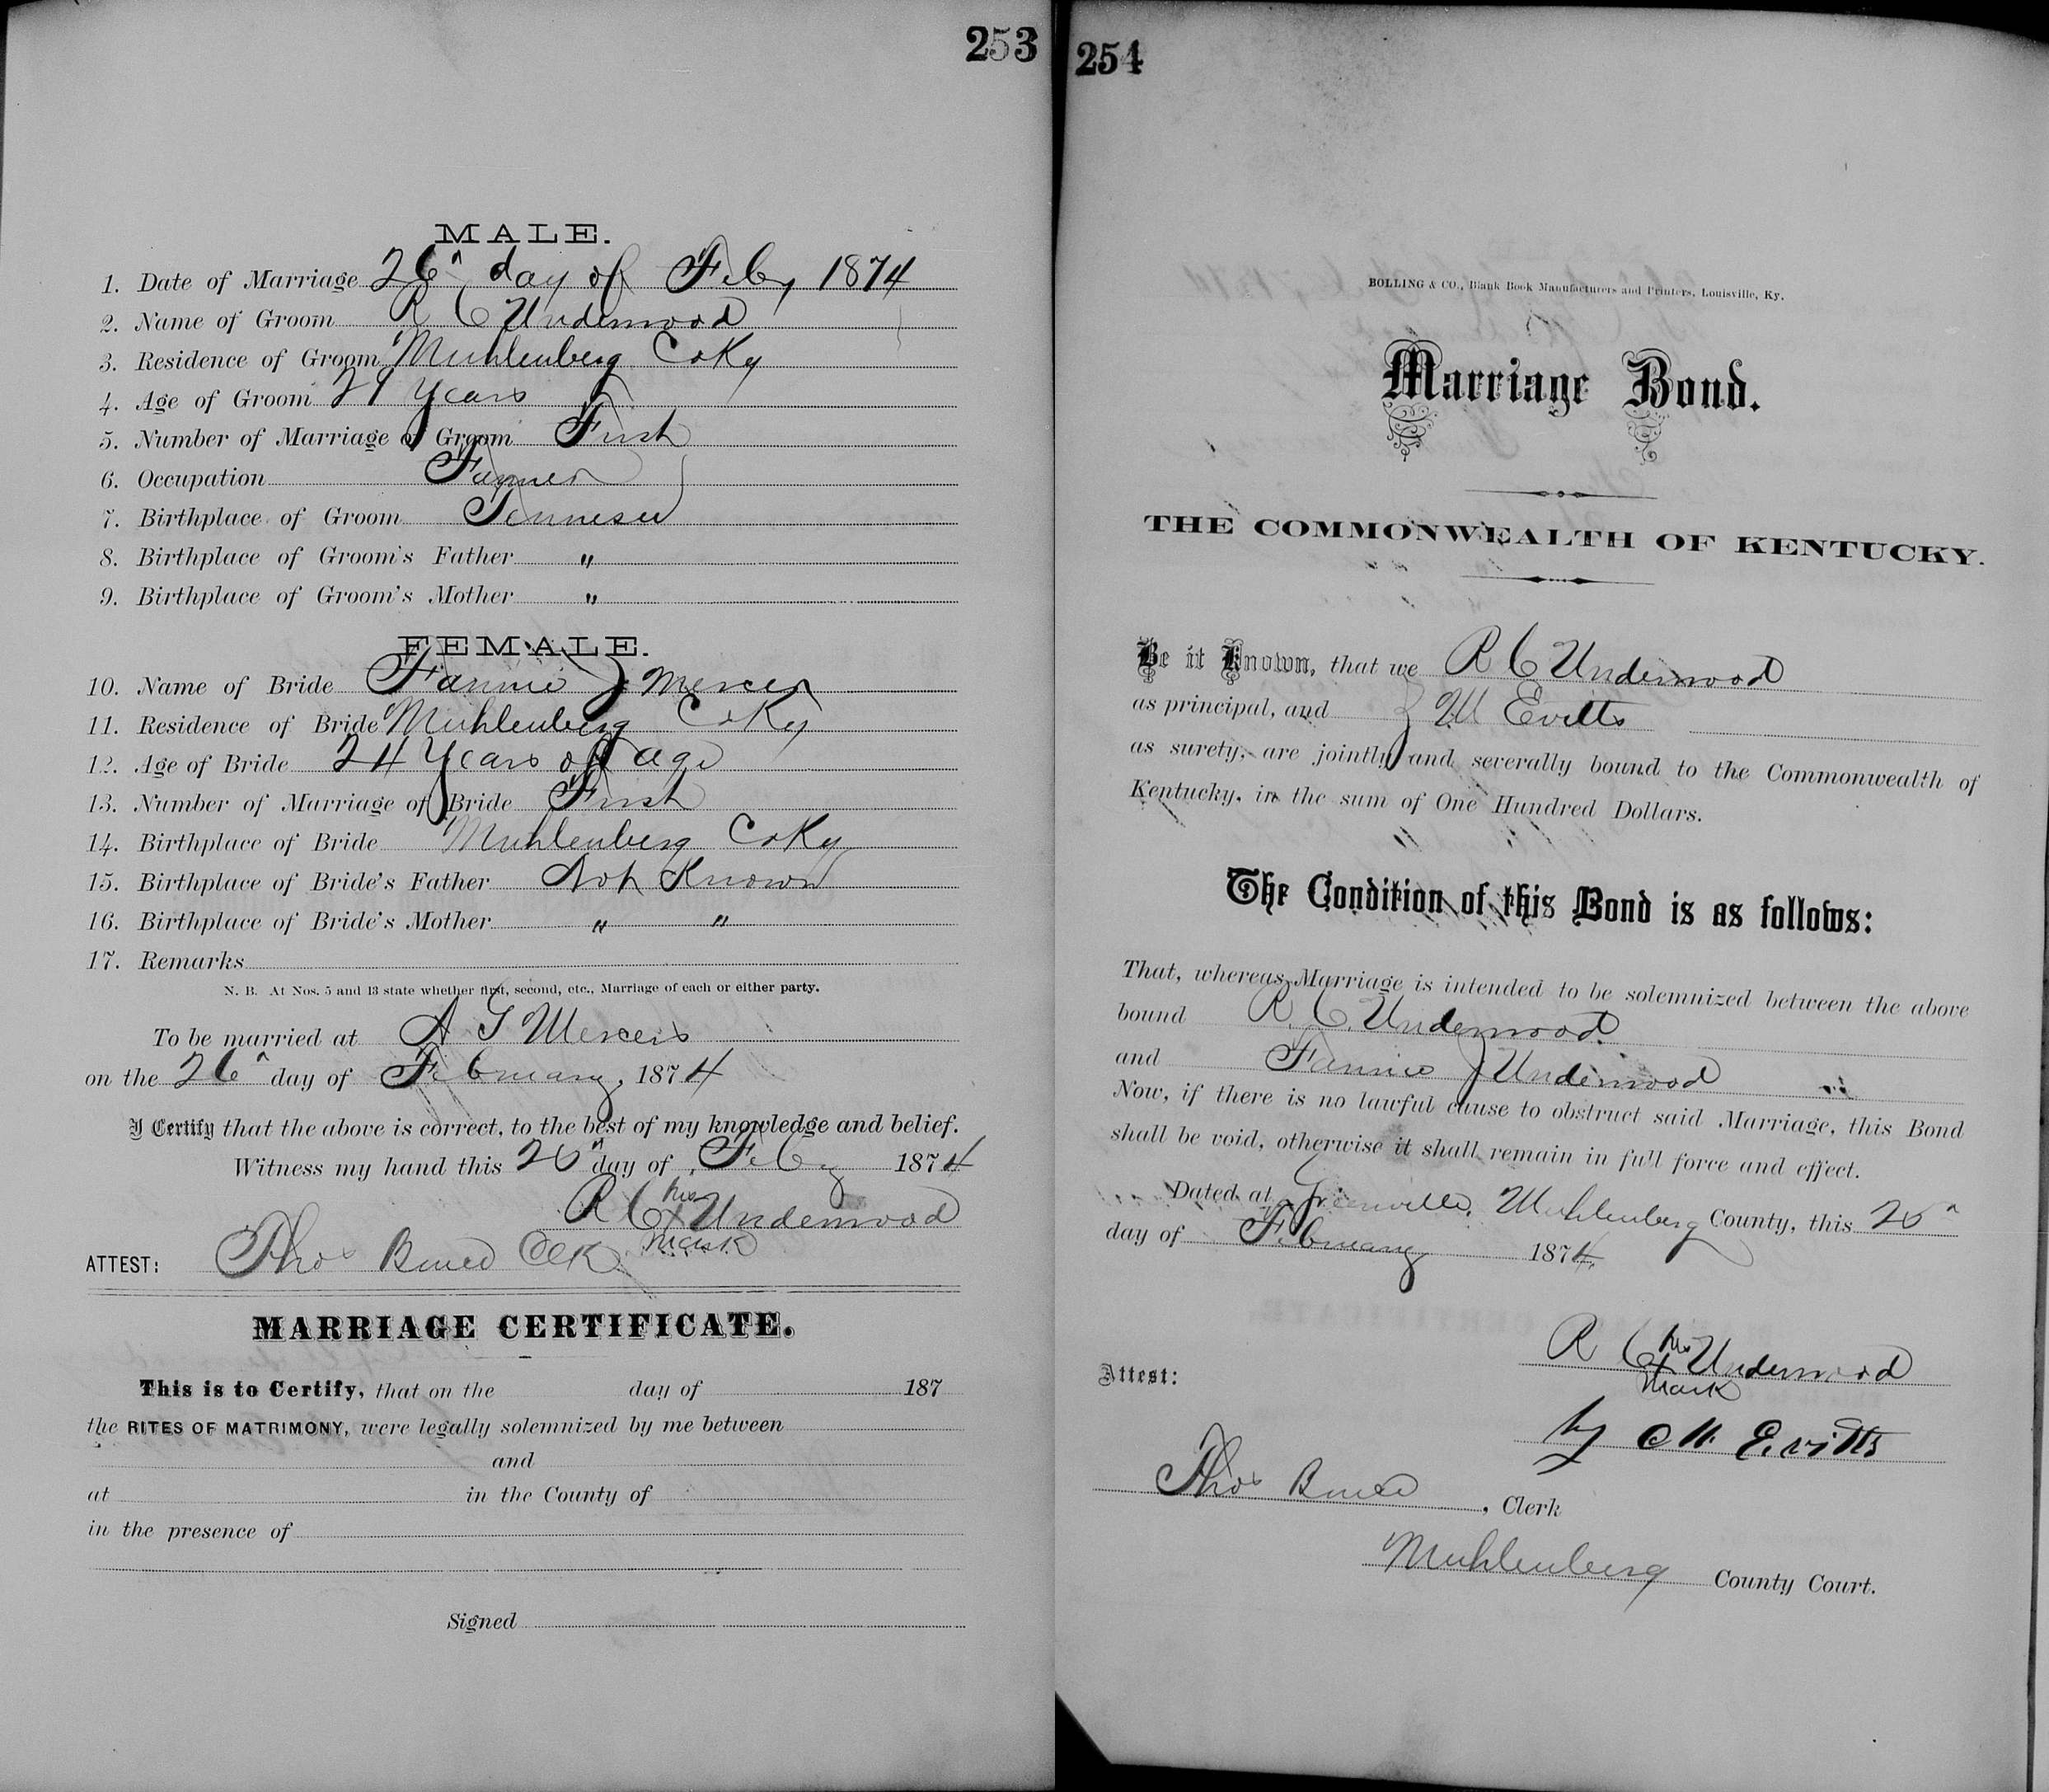 253
MALE.
1. Date of Marriage 26" day of Feby 1874
2. Name of Groom R C Underwood
3. Residence of Groom Muhlenberg Co Ky
4. Age of Groom 29 Years
5. Number of Marriage of Groom First
6. Occupation Farmer
7. Birthplace of Groom Tennesee
8. Birthplace of Groom's Father "
9. Birthplace of Groom's Mother "
FEMALE.
10. Name of Bride Fannie J Mercer
11. Residence of Bride Muhlenberg Co Ky
12. Age of Bride 24 Years of age
13. Number of Marriage of Bride First
14. Birthplace of Bride Muhlenberg Co Ky
15. Birthplace of Bride's Father Not Known
16. Birthplace of Bride's Mother " "
17. Remarks
N. B. At Nos. 5 and 13 state whether first, second, etc., Marriage of each or either party.
To be married at A G Mercers
on the 26" day of February, 1874
I Certify that the above is correct, to the best of my knowledge and belief.
Witness my hand this 25" day of Feby 1874
his
R C x Underwood
mark
ATTEST: Thos Bruce Clk
MARRIAGE CERTIFICATE.
This is to Certify, that on the day of 187
the RITES OF MATRIMONY, were legally solemnized by me between
and
at in the County of
in the presence of
Signed
254
BOLLING & CO., Blank Book Manufacturers and Printers, Louisville, Ky.
Marriage Bond.
THE COMMONWEALTH OF KENTUCKY.
Be it Known, that we R C Underwood
as principal, and J W Evitts
as surety, are jointly and severally bound to the Commonwealth of
Kentucky, in the sum of One Hundred Dollars.
The Condition of this Bond is as follows:
That, whereas Marriage is intended to be solemnized between the above
bound R. C. Underwood
and Fannie J Underwood
Now, if there is no lawful cause to obstruct said Marriage, this Bond
shall be void, otherwise it shall remain in full force and effect.
Dated at Greenville, Muhlenberg County, this 25"
day of February 1874.
his
R C x Underwood
mark
Attest:
by Evitts
Thos Bruce, Clerk
Muhlenberg County Court.